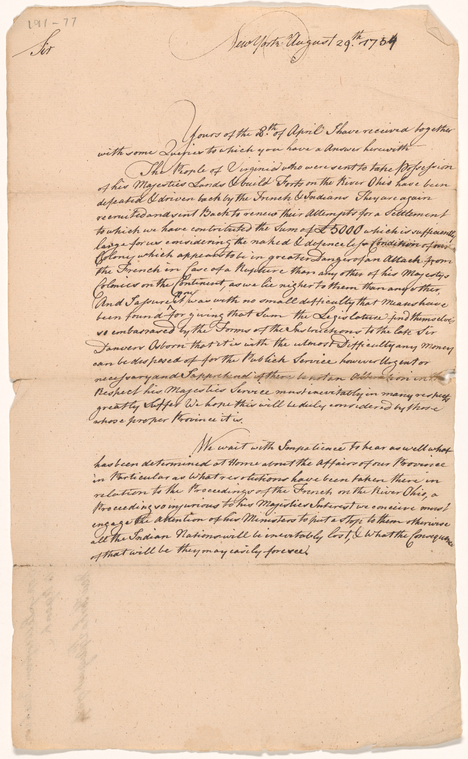 191-77
Sir
New York August 29.th 1754
Yours of the 8.th of April I have received together
with some Queries to which you have a Answer herewith
The People of Virginia who were sent to take Possession
of his Majesties Lands & build Forts on the River Ohio have been
defeated & driven back by the French & Indians They are again
recruited and sent Back to renew their Attempts for a Settlement
to which we have contributed the Sum of £5000 which is sufficiently
large for us considering the naked & defenceless Condition of our
Colony which appears to be in greater Danger of an Attack from
the French in Case of a Rupture than any other of his Majestys
Colonies on the Continent, as we lie nigher to them than any other,
And I assure you it was with no small difficulty that Means have
been found for giving that Sum the Legislature find themselves
so embarassed by the Forms of the Instructions to the late Sir
Danvers Osborn that it is with the utmost Difficulty any Money
can be disposed of for the Publick Service however Urgent or
necessary and I apprehend if there be not an Alteration in this
Respect his Majesties Service must inevitably in many respects
greatly suffer We hope this will be duly considered by those
whose proper Province it is.
We wait with Impatience to hear as well what
has been determined at Home about the Affairs of our Province
in Particular as What resolutions have been taken there in
relation to the Proceedings of the French on the River Ohio, a
Proceeding so injurious to his Majesties Interest we conceive must
engage the attention of his Ministers to put a Stop to them otherwise
all the Indian Nations will be inevitably lost, & What the Consequence
of that will be they may easily foresee.